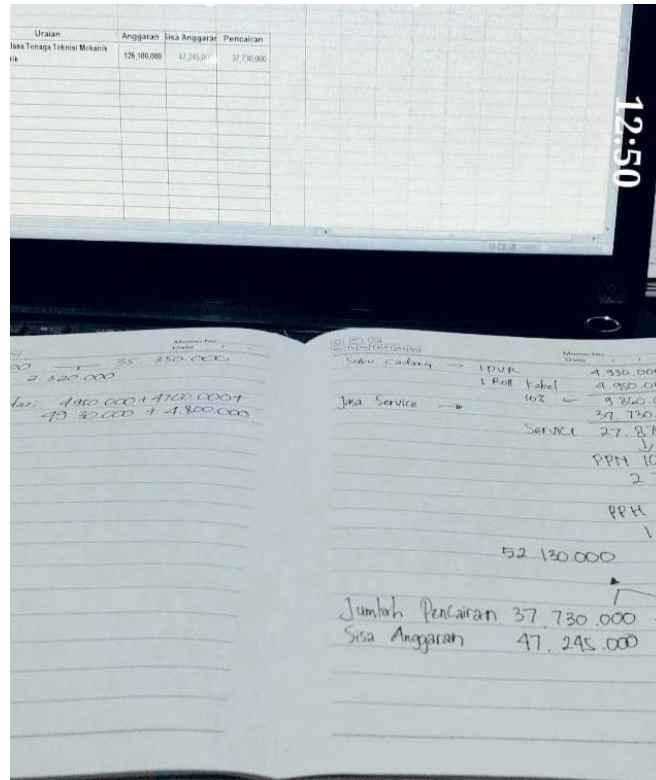 Uraian Anggaran Sisa Anggaran Pencairan
Jasa Tenaga Teknisi Mekanik
rik 126,100,000 47,245,00 37,730,000
12:50
Memo No.
Date
35.350.000
2.320.000
4950.000 + 4700.000 +
4930.000 + 4.800.000
Memo No.
Date
Suku Cadang → 1 DVR 4.930.00
1 Roll Kabel 4.950.0
Jasa Service → 10%
37.730.
Service 27.87
PPN 10
2
PPH
1
52.130.000
Jumlah Pencairan 37.730.000
Sisa Anggaran 47.245.000